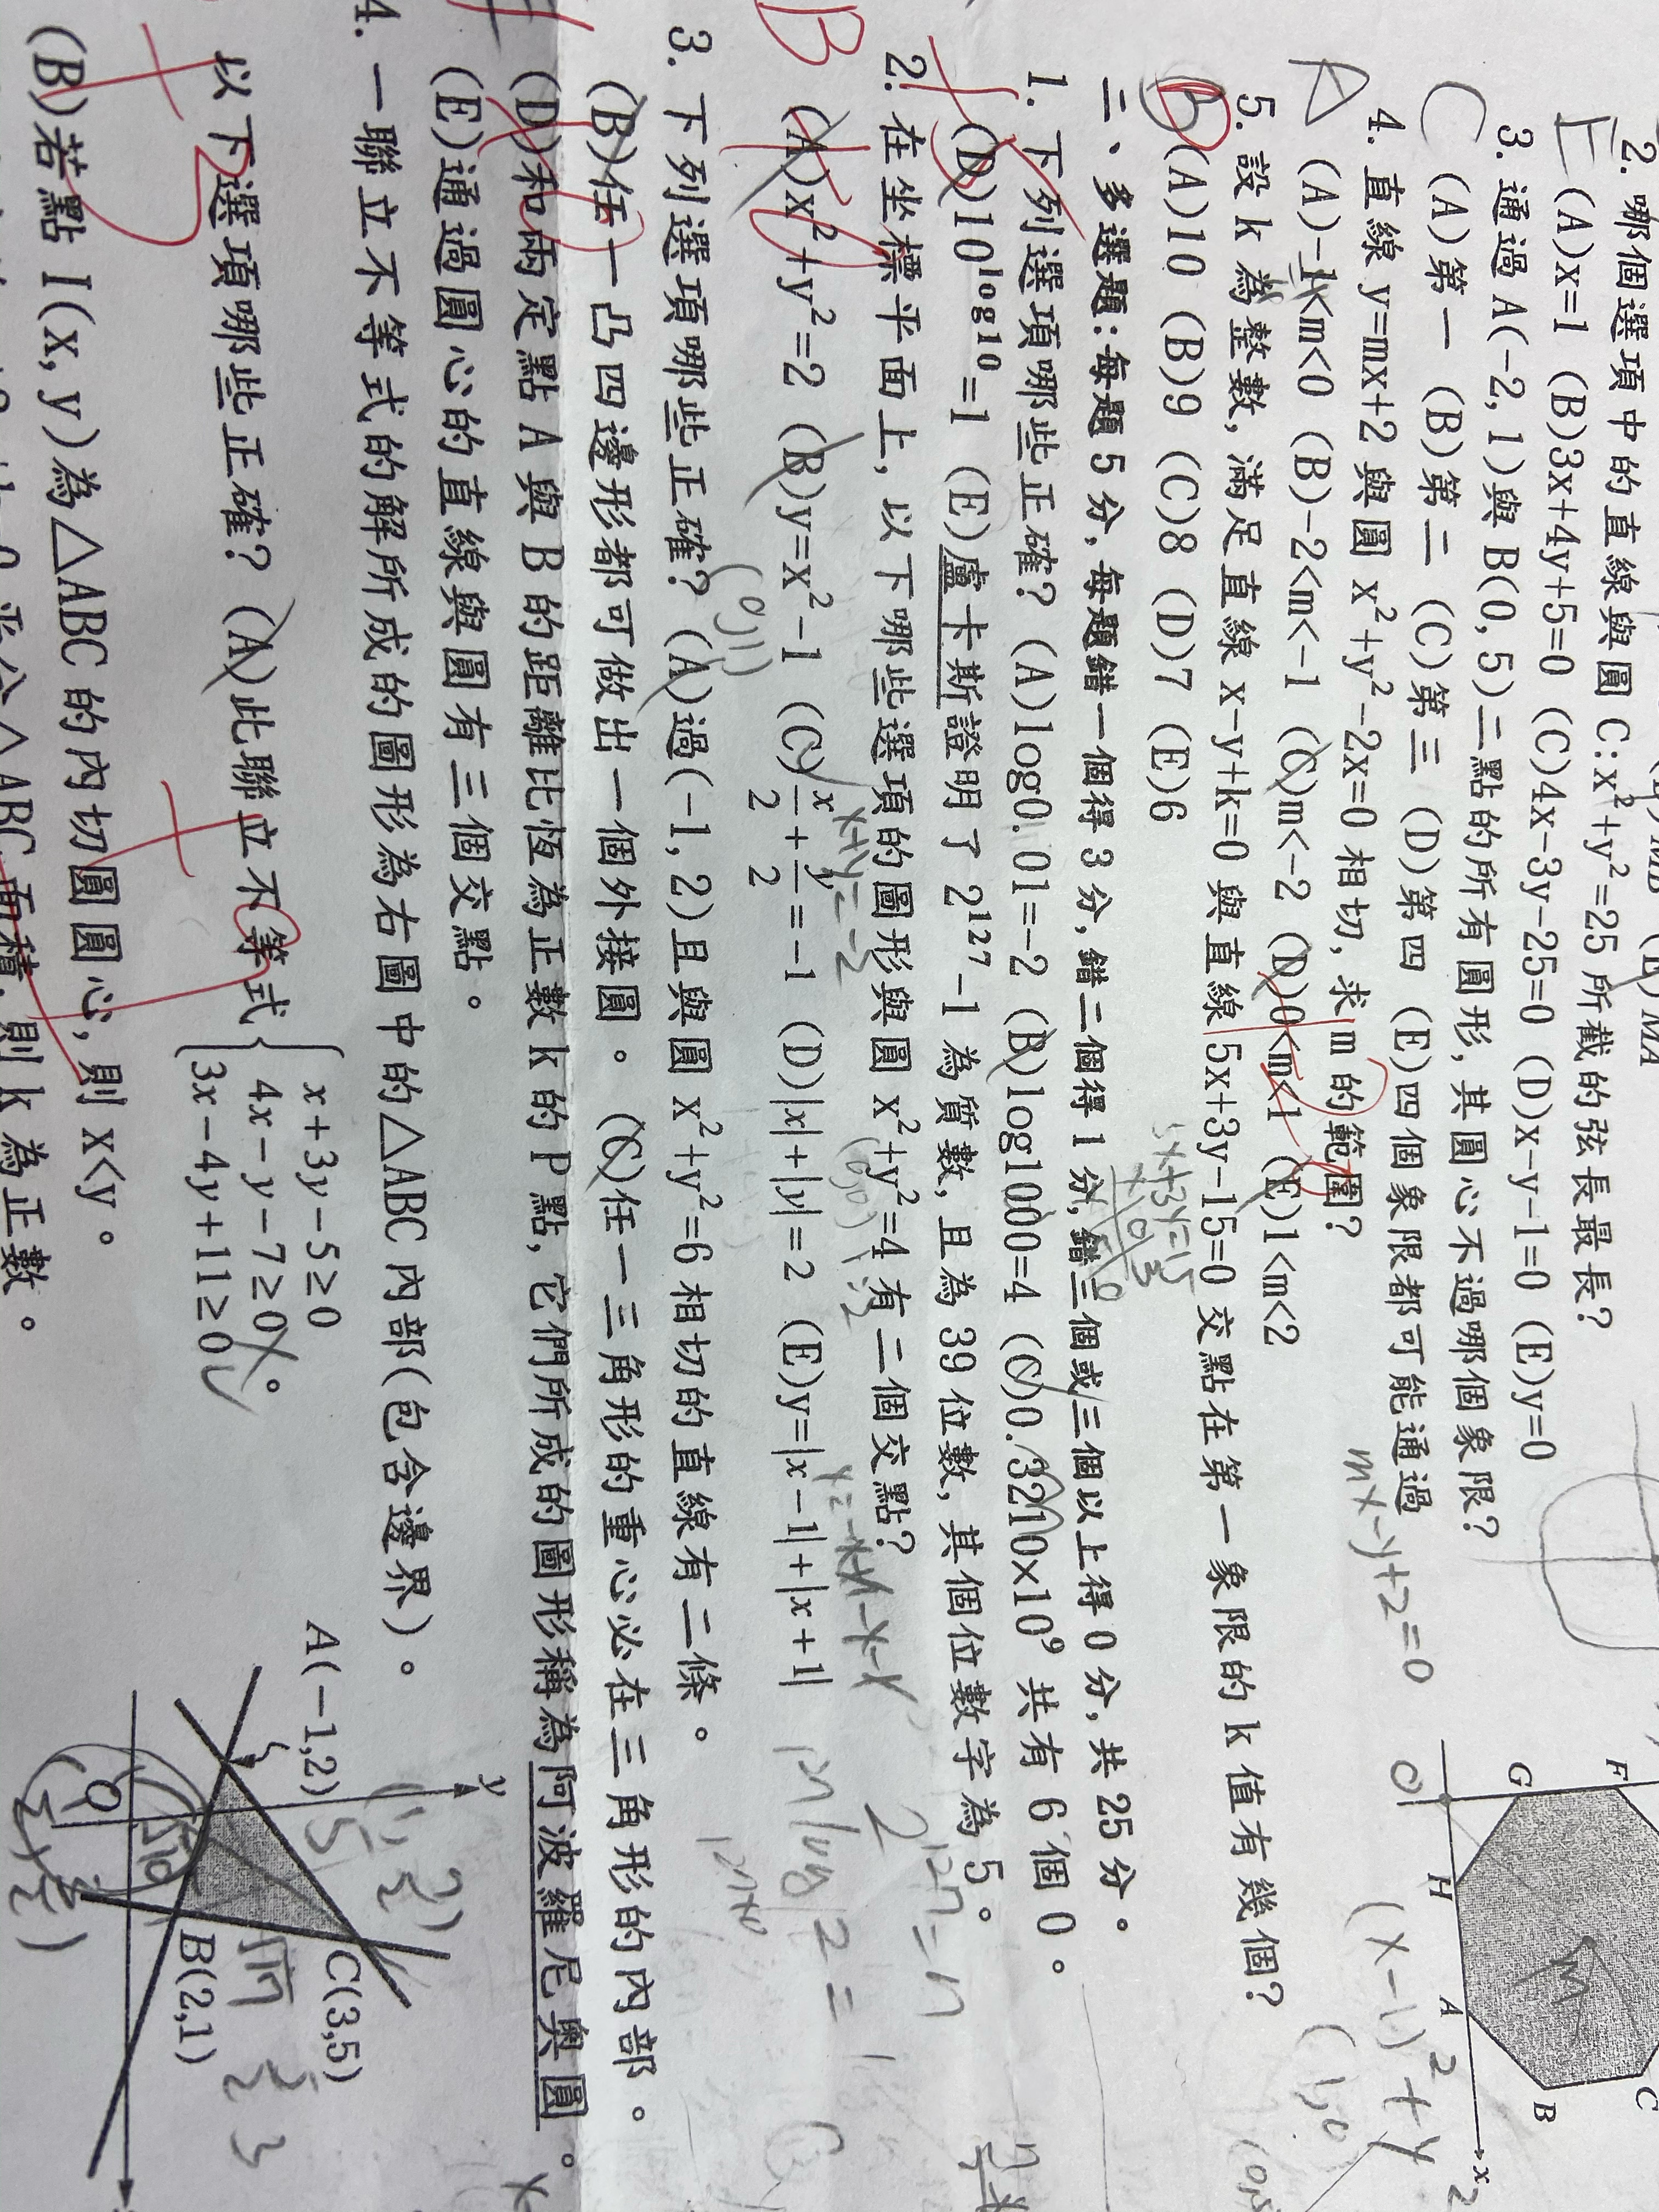 2. 哪個選項中的直線與圓 C:x²+y²=25 所截的弦長最長?
E (A)x=1 (B)3x+4y+5=0 (C)4x-3y-25=0 (D)x-y-1=0 (E)y=0
3. 通過 A(-2,1)與 B(0,5)二點的所有圓形,其圓心不過哪個象限?
C (A)第一 (B)第二 (C)第三 (D)第四 (E)四個象限都可能通過
4. 直線 y=mx+2 與圓 x²+y²-2x=0 相切,求 m 的範圍?
mx-y+2=0
A (A)-1<m<0 (B)-2<m<-1 (C)m<-2 (D)0<m<1 (E)1<m<2
5. 設 k 為整數,滿足直線 x-y+k=0 與直線 5x+3y-15=0 交點在第一象限的 k 值有幾個?
B (A)10 (B)9 (C)8 (D)7 (E)6
二、多選題:每題 5 分,每題錯一個得 3 分,錯二個得 1 分,錯三個或三個以上得 0 分,共 25 分。
1. 下列選項哪些正確? (A)log0.01=-2 (B)log1000=4 (C)0.3210×10⁹ 共有 6 個 0。
(D)10^log10=1 (E)盧卡斯證明了 2¹²⁷-1 為質數,且為 39 位數,其個位數字為 5。
2. 在坐標平面上,以下哪些選項的圖形與圓 x²+y²=4 有二個交點?
x+y=-2
(A)x²+y²=2 (B)y=x²-1 (C)x/2+y/2=-1 (D)|x|+|y|=2 (E)y=|x-1|+|x+1|
(0,1)
B
3. 下列選項哪些正確? (A)過(-1,2)且與圓 x²+y²=6 相切的直線有二條。
(B)任一凸四邊形都可做出一個外接圓。 (C)任一三角形的重心必在三角形的內部。
(D)和兩定點 A 與 B 的距離比恆為正數 k 的 P 點,它們所成的圖形稱為阿波羅尼奧圓。
(E)通過圓心的直線與圓有三個交點。
4. 一聯立不等式的解所成的圖形為右圖中的△ABC 內部(包含邊界)。
以下選項哪些正確? (A)此聯立不等式
x+3y-5≥0
4x-y-7≥0
3x-4y+11≥0
。
(B)若點 I(x,y)為△ABC 的內切圓圓心,則 x<y。
平分△ABC 面積,則 k 為正數。
F
G
H
A
B
C
M
O
x
(x-1)²+y
(1,0)
y
A(-1,2)
C(3,5)
B(2,1)
O